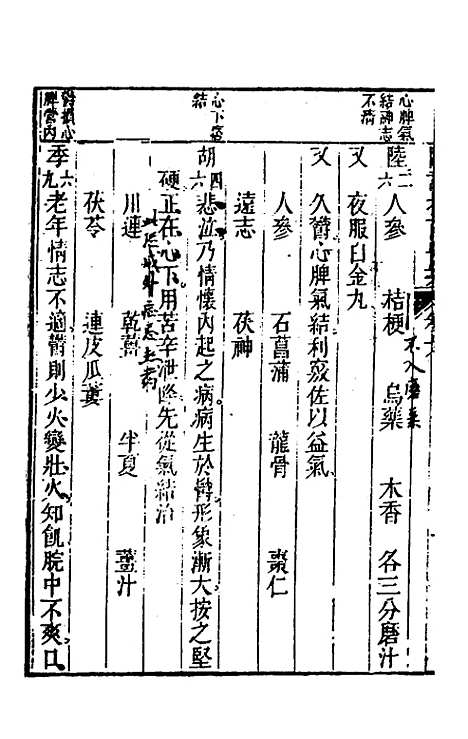 心脾氣
結神志
不清
陸 二六 人參 桔梗 烏藥 木香 各三分磨汁
不入磨藥
又 夜服白金丸
又 久鬱心脾氣結利竅佐以益氣
人參 石菖蒲 龍骨 棗仁
遠志 茯神
心下痞
結
胡 四六 悲泣乃情懷內起之病病生於鬱形象漸大按之堅
硬正在心下用苦辛泄降先從氣結治
川連 乾薑 半夏 薑汁
茯苓 連皮瓜蔞
鬱損心
脾營內
季 六九 老年情志不適鬱則少火變壯火知飢脘中不爽口